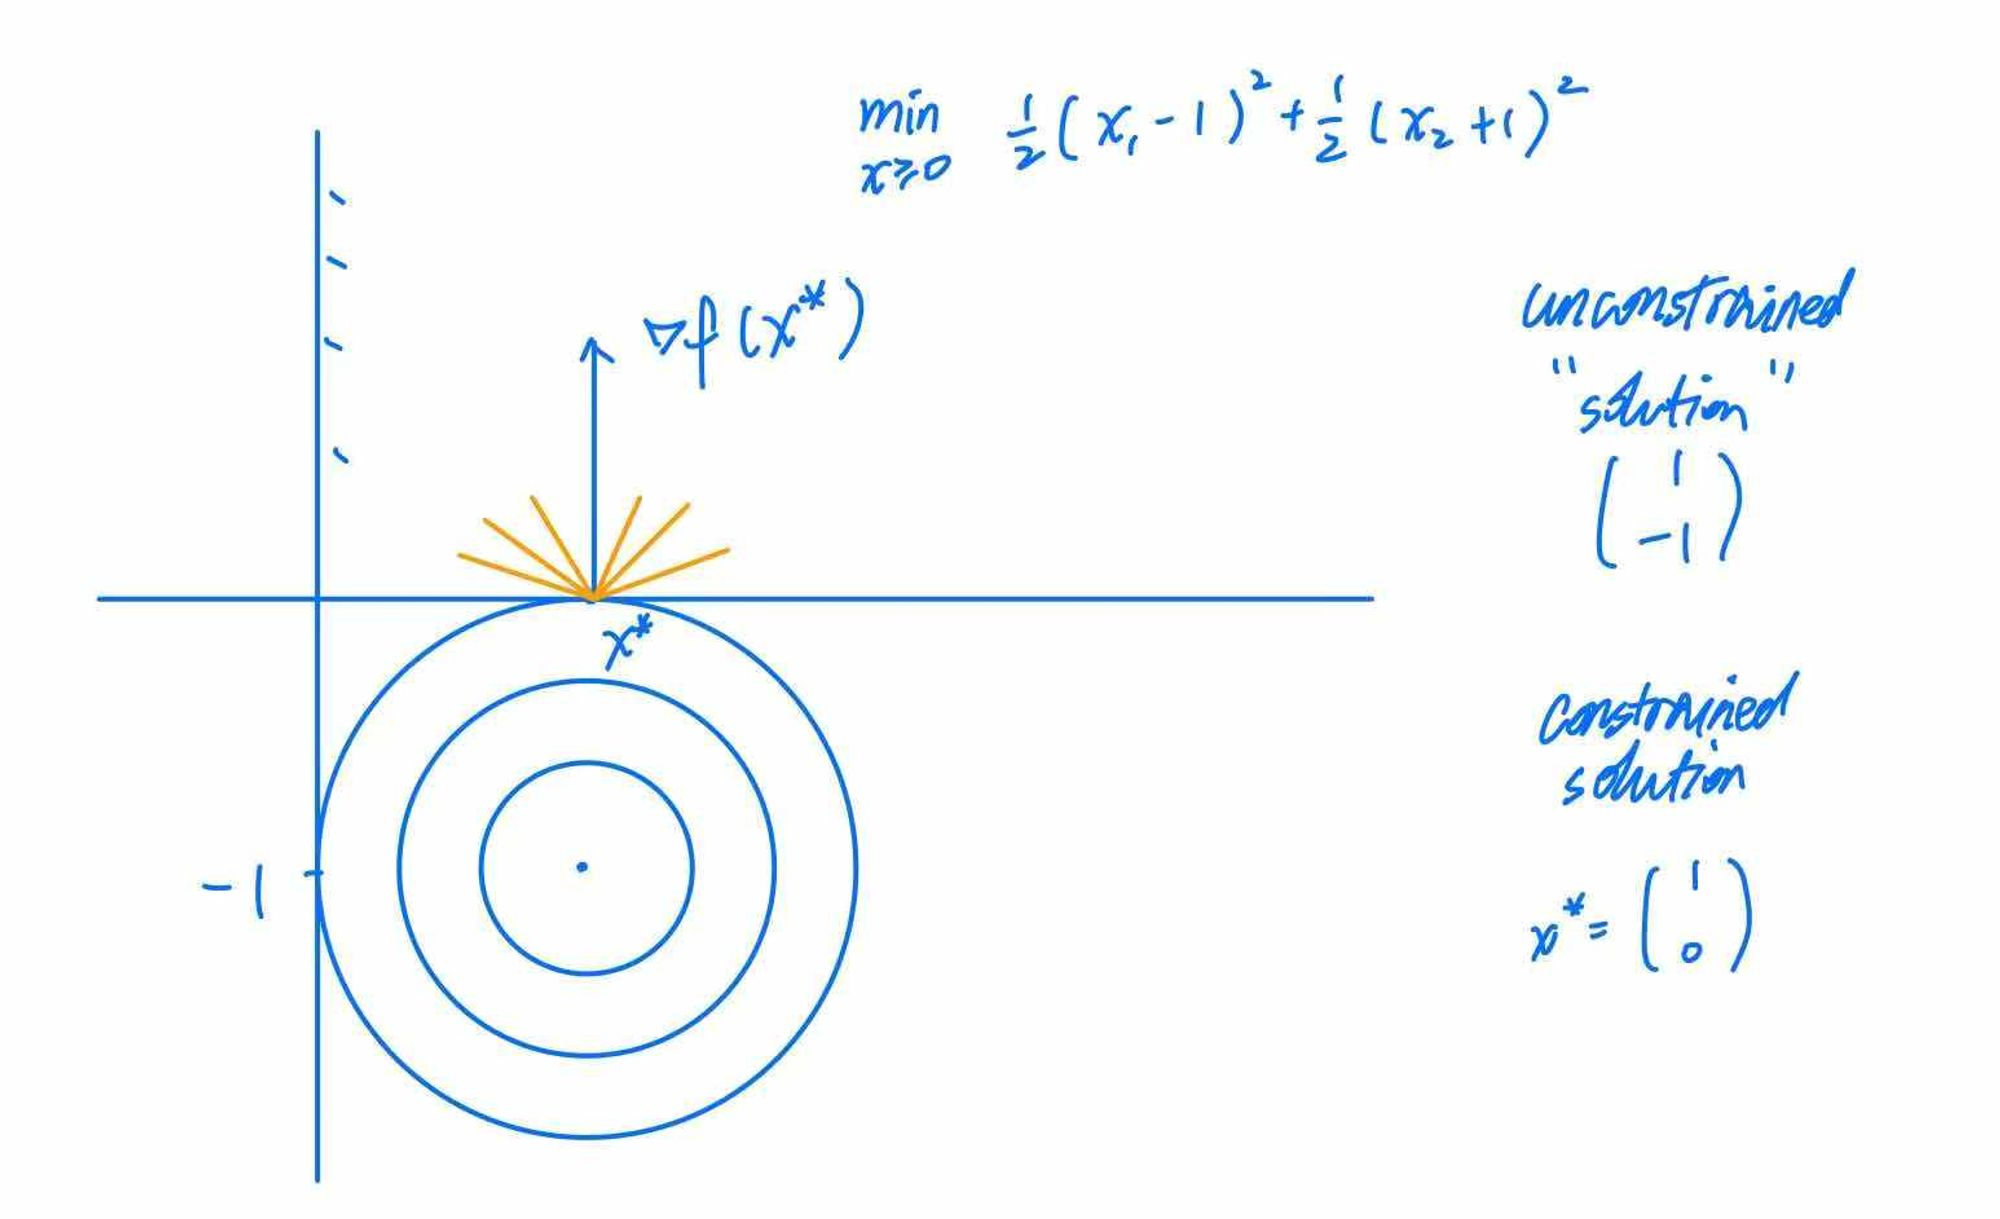 min 1/2 (x₁ - 1)² + 1/2 (x₂ + 1)²
x≥0
∇f(x*)
unconstrained
"solution"
( 1
-1 )
x*
constrained
solution
-1
x* = ( 1
0 )